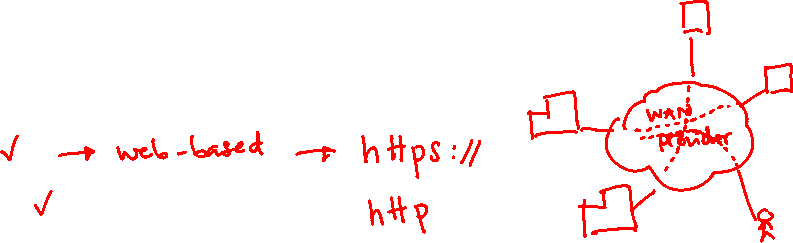 ✓ → web-based → https://
✓ http
WAN
provider